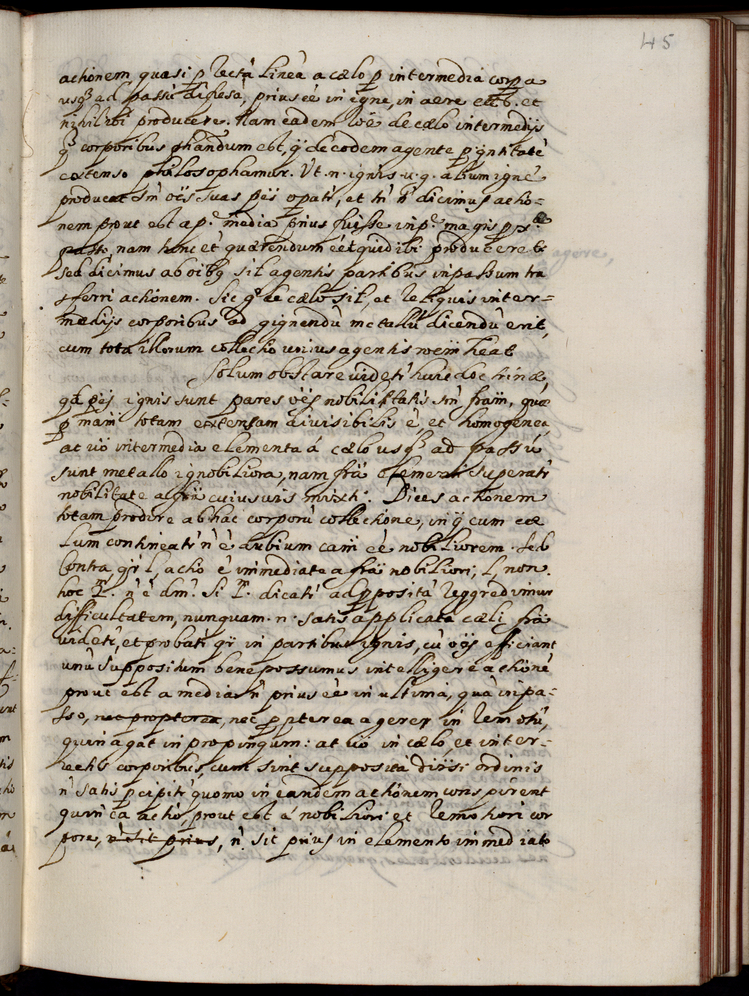 45
actionem quasi p rectã lineã a cælo p intermedia corpa
usq3 ad passũ difusã, prius ẽe in igne, in aere et
nihil ibi producere. Nam eadem roẽ de cælo intermedijs
q3 corporibus phandum est, q̃ de eodem agente p q̃ntitatẽ
extenso philosophamur. Ut .n. ignis .u.g. alium ignẽ
producat sm̃ oẽs suas p̃es opati, et tñ ñ dicimus actio-
nem prout est a p.ᵉ media prius fuisse in p.ᵉ magis
nam tunc et quærendum ẽet quid ibi produceret
sed dicimus ab oĩbq sil agentis partibus in passum trã
sferri actionem. Sic q̃ de cælo sil, et reliquis inter-
mædijs corporibus ad gignendũ metallũ dicendũ erit,
cum tota illorum collectio unius agentis
Solum obstare videtr̃ huic doctrinæ,
p̃es ignis sunt pares oẽs nobilitatis sm̃ frãm, quæ
p mam̃ totam extensam divisibilis ẽ, et homogenea,
at uõ intermedia elementa á cælo usq3 ad passũ
sunt metallo ignobiliora, nam frã elementi superatr̃
nobilitate a frã cuiusuis mixti. Dices actionem
totam prodire ab hac corporũ collectione, in q̃ cum cæ
lum contineatr̃ ñ ẽ dubium cam̃ ẽe nobiliorem. Sed
Contra q̃r l, actio ẽ immediate a frã nobiliori, l, non.
hoc 2.ᵐ ñ ẽ dm̃. Si p.ᵐ dicatr̃ ad pposità reggredimur
difficultatem, nunquam .n. satis applicata cæli frã
videtr̃, et probatr̃ q̃r in partibus ignis, cũ oẽs efficiant
unũ suppositum bene possumus intelligere actionẽ
prout est a mediar̃ ñ prius ẽe in ultima, quã in pa-
sso, nec propterea, nec pp̃terea agerer in remotũ,
quin agat in propinqum: at uõ in cælo, et inter-
iectis corporibus, cum sint supposita diũsi ordinis
ñ satis pcipitr̃ quomo in eandem actionem conspirent
quin ea actio, prout est á nobiliori et remotiori cor
pore, ñ sit prius, ñ sit prius in elemento immediato